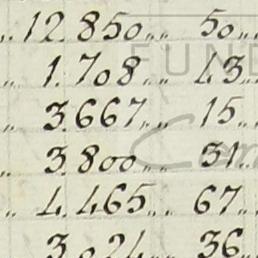 „ 12.850 „ „ 50 „
„ 1.708 „ „ 43 „
„ 3.667 „ „ 15 „
„ 3.800 „ „ 31 „
„ 4.465 „ „ 67 „
3.024 „ „ 36 „
FUND